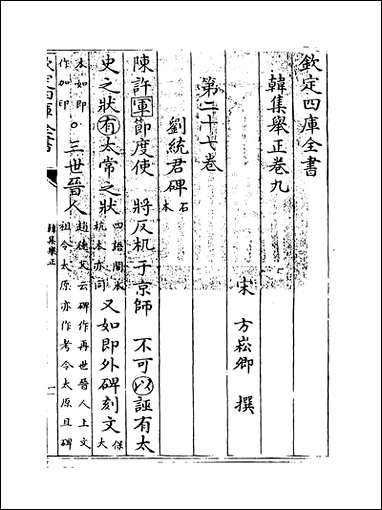 欽定四庫全書
韓集舉正卷九
宋 方崧卿 撰
第二十七卷
劉統君碑 石本
陳許軍節度使 將反机于京師 不可以誣有太
史之狀有太常之狀 四語閣本杭本亦同 又如即外碑刻文 保大
本如即作加印。三世晉人 趙德父云碑作再世晉人上文祖令太原亦作考令太原且碑
欽定四庫全書
韓集舉正